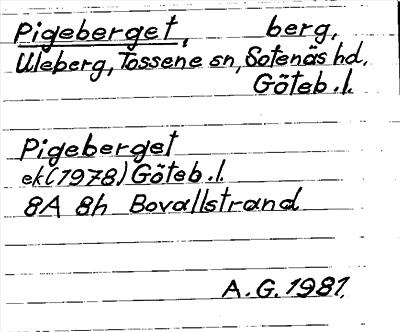 Pigeberget, berg,
Uleberg, Tossene sn, Sotenäs hd.
Göteb. l.
Pigeberget
ek (1978) Göteb. l.
8A 8h Bovallstrand
A. G. 1981.